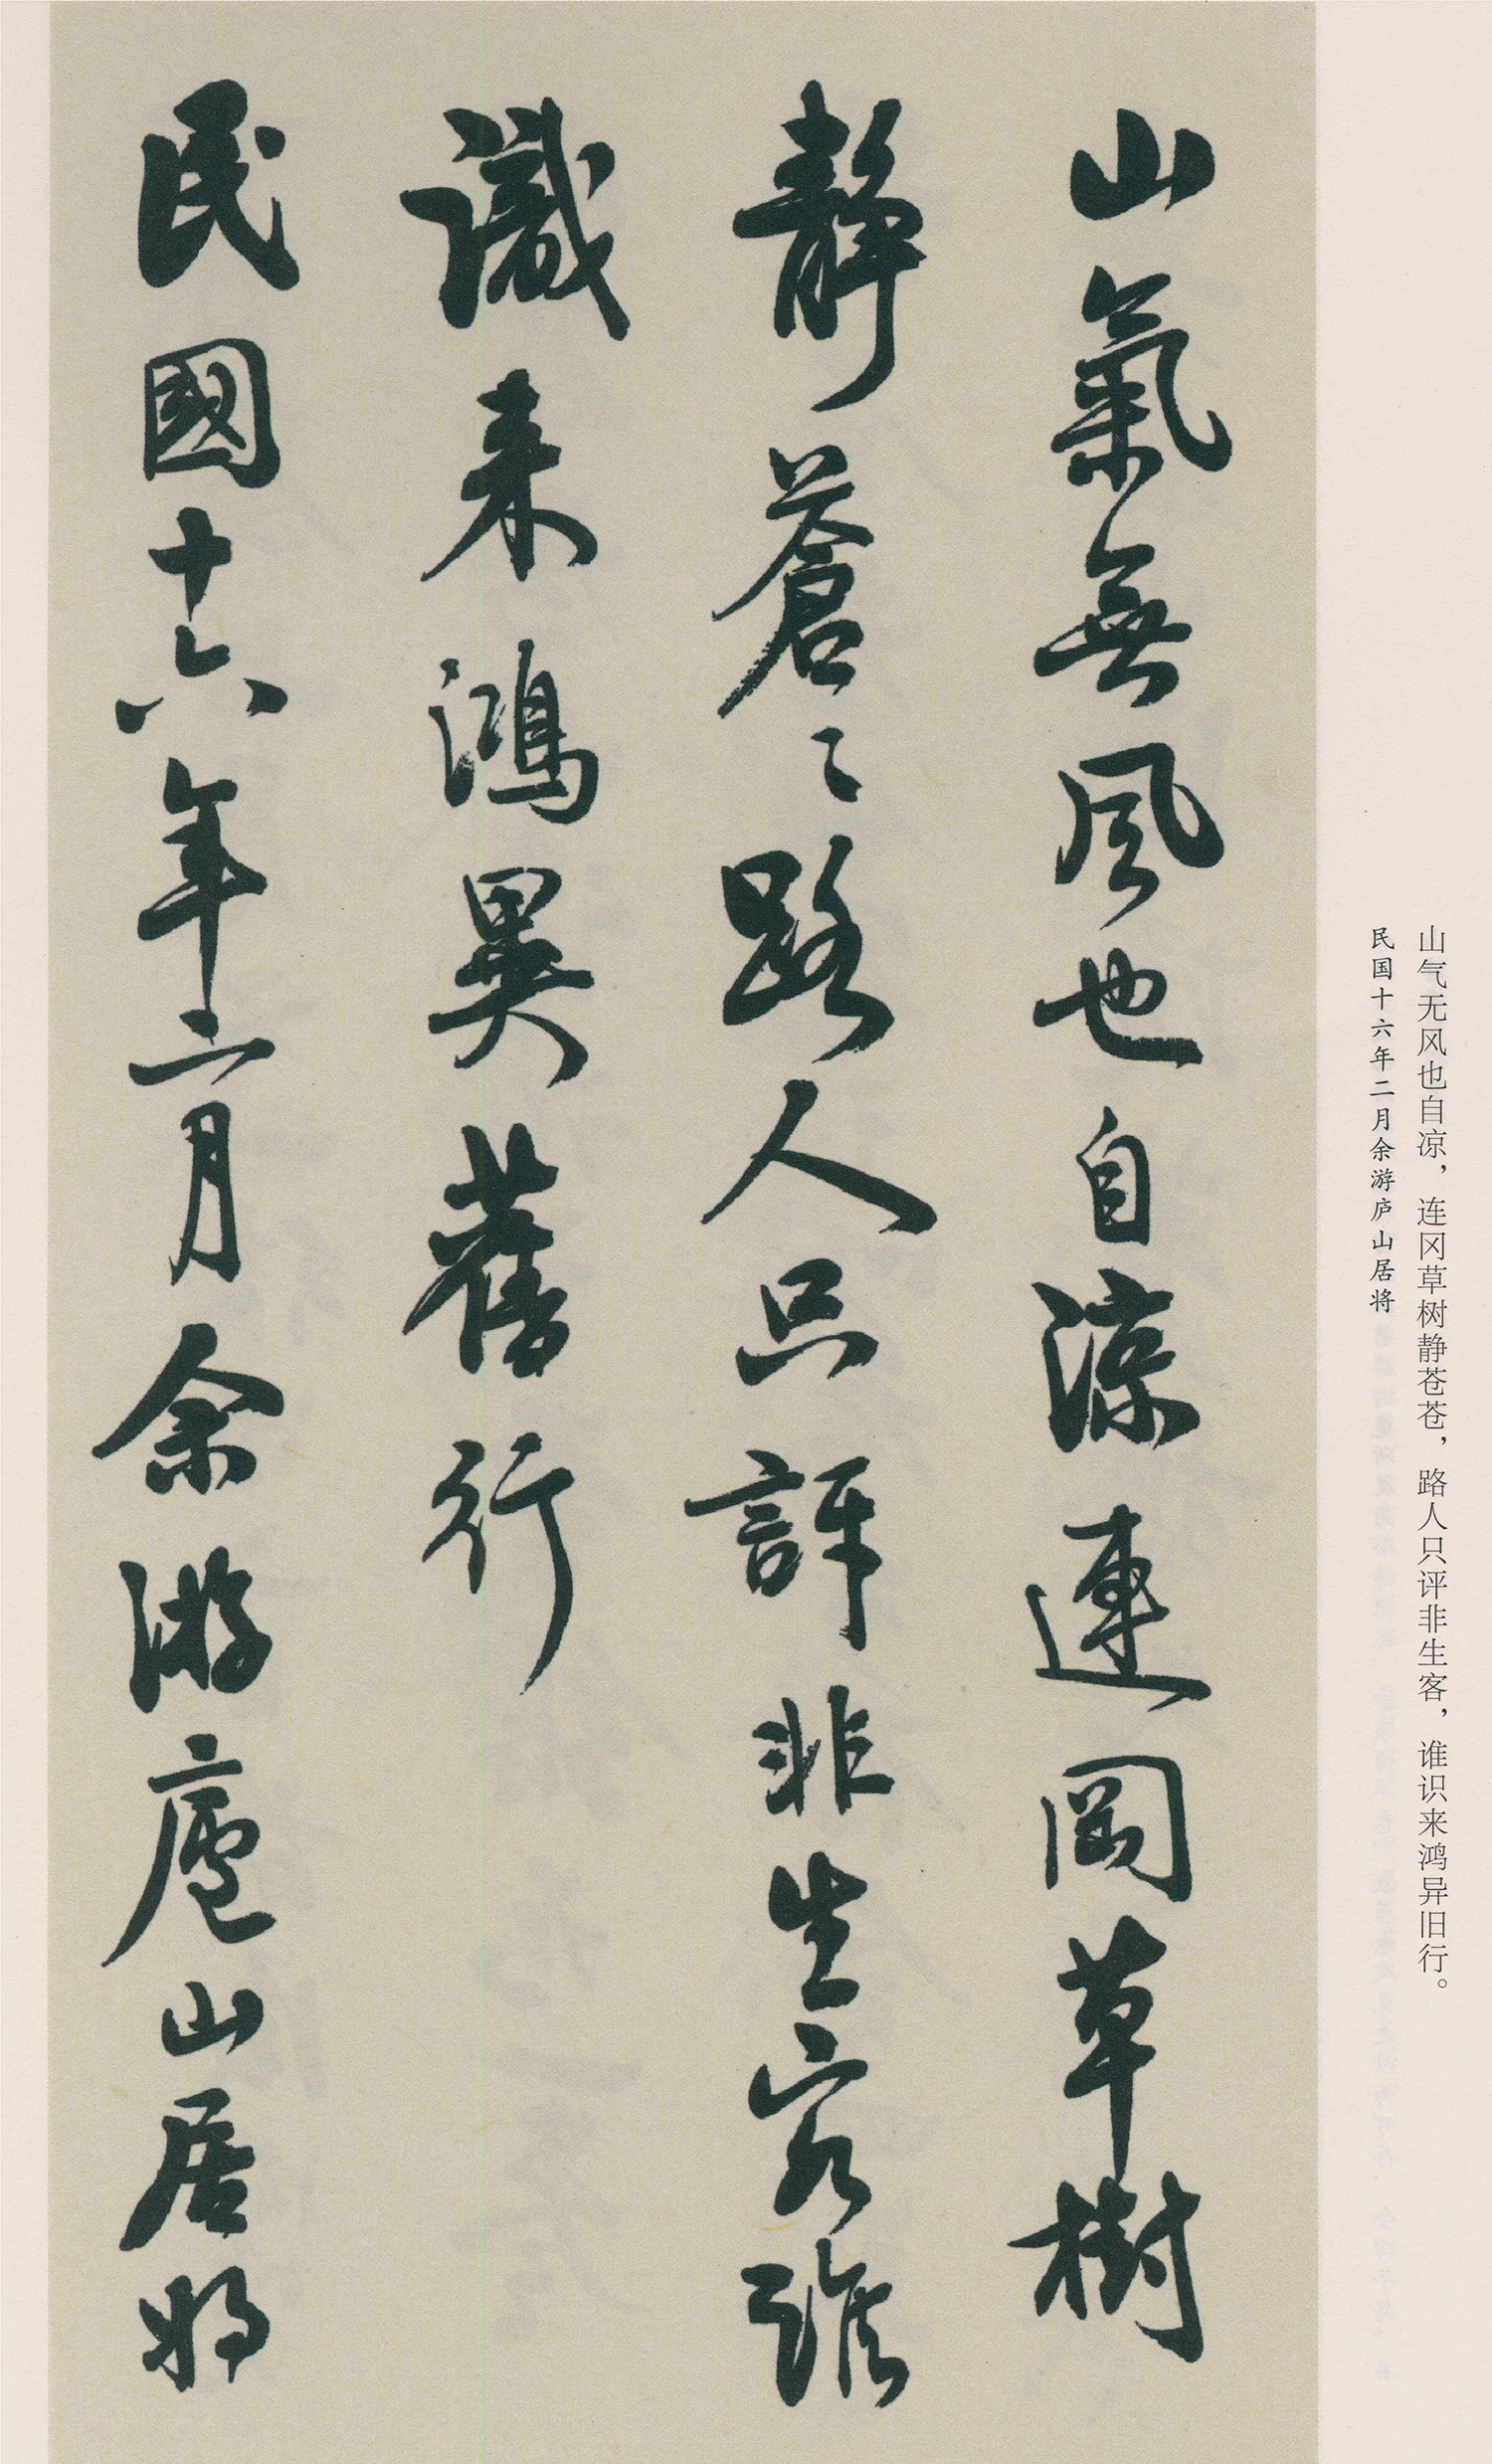 山气无风也自凉，连冈草树静苍苍，路人只评非生客，谁识来鸿异旧行。
民国十六年二月余游庐山居将
山氣無風也自涼連岡草樹
靜蒼〻路人只評非生客誰
識来鴻異舊行
民國十六年二月余游廬山居將